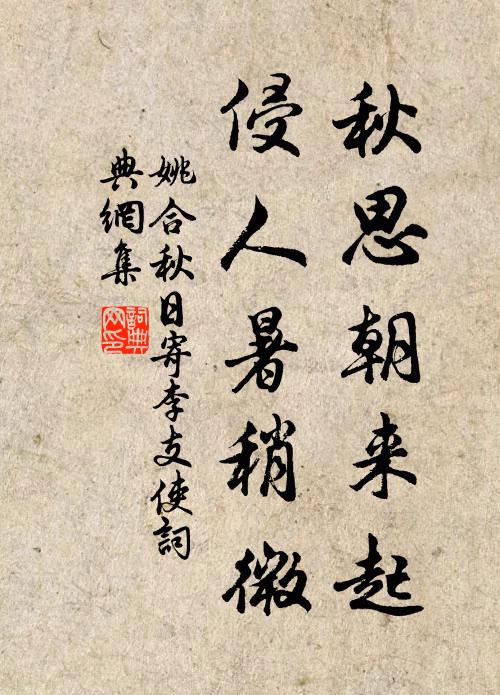 秋思朝来起
侵人暑稍微
姚合秋日寄李支使詞
典網集
詞典
网印